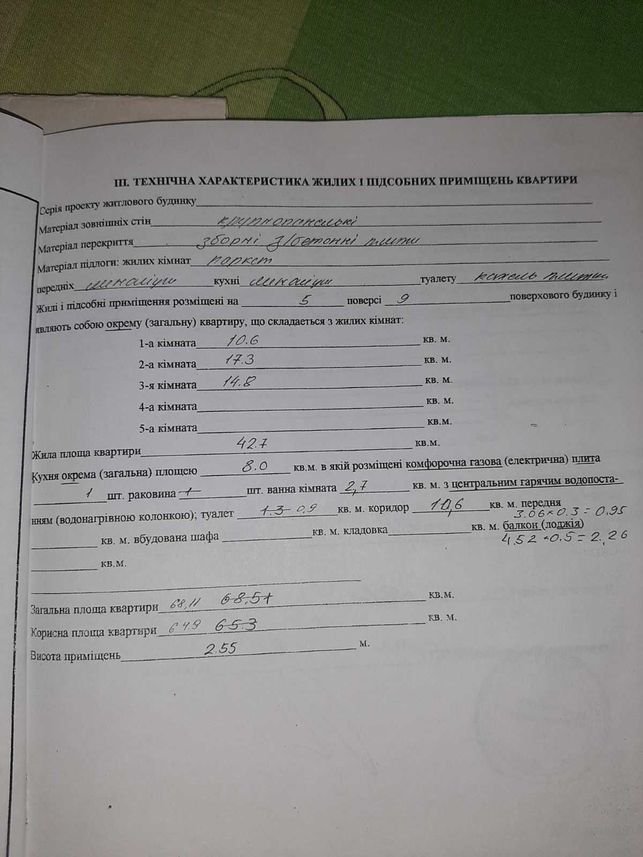 III. ТЕХНІЧНА ХАРАКТЕРИСТИКА ЖИЛИХ І ПІДСОБНИХ ПРИМІЩЕНЬ КВАРТИРИ
Серія проекту житлового будинку
Матеріал зовнішніх стін крупнопанельні
Матеріал перекриття зборні з/бетонні плити
Матеріал підлоги: жилих кімнат паркет
передніх лінолиум кухні лінолиум туалету кахель плитки
Жилі і підсобні приміщення розміщені на 5 поверсі 9 поверхового будинку і
являють собою окрему (загальну) квартиру, що складається з жилих кімнат:
1-а кімната 10.6 кв. м.
2-а кімната 17.3 кв. м.
3-я кімната 14.8 кв. м.
4-а кімната кв. м.
5-а кімната кв.м.
Жила площа квартири 42.7 кв.м.
Кухня окрема (загальна) площею 8.0 кв.м. в якій розміщені комфорочна газова (електрична) плита
1 шт. раковина 1 шт. ванна кімната 2,7 кв. м. з центральним гарячим водопоста-
нням (водонагрівною колонкою); туалет 1.3 0,9 кв. м. коридор 10,6 кв. м. передня
3.06×0.3=0.95
кв. м. вбудована шафа кв. м. кладовка кв. м. балкон (лоджія)
4,52×0.5=2,26
кв.м.
Загальна площа квартири 68,11 68.51 кв.м.
Корисна площа квартири 64.9 65.3 кв. м.
Висота приміщень 2.55 м.